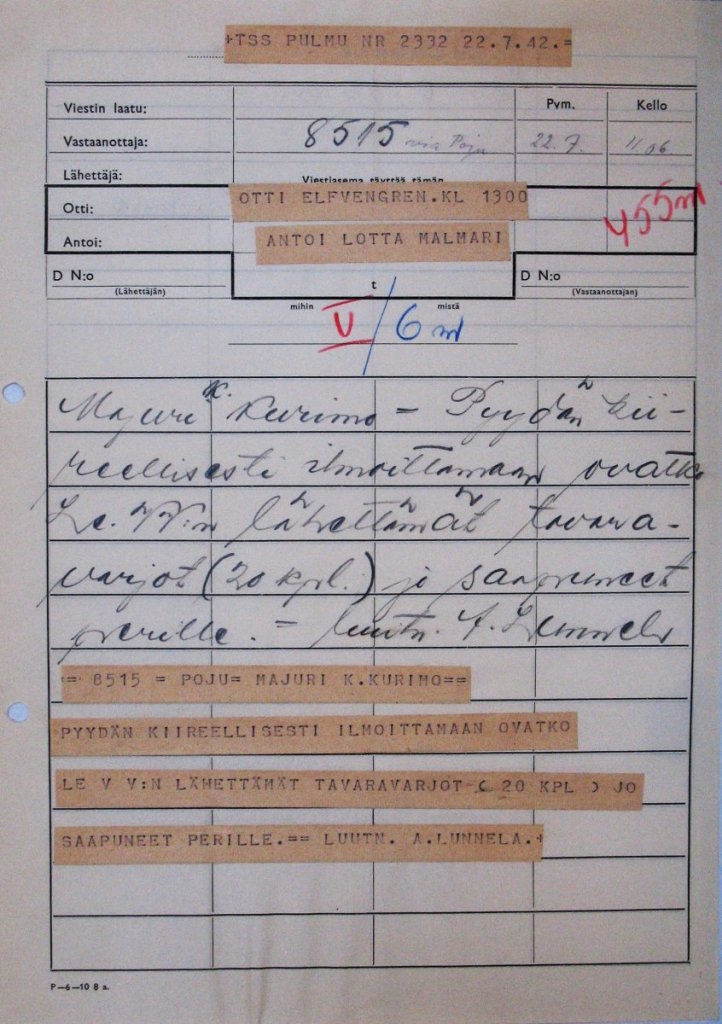 +TSS PULMU NR 2332 22.7.42.=
Viestin laatu: Pvm. Kello
Vastaanottaja: 8515 via Poju 22.7. 11.06
Lähettäjä: Viestiasema täyttää tämän
Otti: OTTI ELFVENGREN.KL 1300 455m
Antoi: ANTOI LOTTA MALMARI
D N:o t D N:o
(Lähettäjän) mihin mistä (Vastaanottajan)
V/6 m
Majuri K. Kurimo = Pyydän kii-
reellisesti ilmoittamaan ovatko
Le. VV:n lähettämät tavara-
varjot (20 kpl.) jo saapuneet
perille. = luutn. A. Lunnela
== 8515 = POJU= MAJURI K.KURIMO==
PYYDÄN KIIREELLISESTI ILMOITTAMAAN OVATKO
LE V V:N LÄHETTÄMÄT TAVARAVARJOT ( 20 KPL ) JO
SAAPUNEET PERILLE.== LUUTN. A.LUNNELA.+
P—6—10 8 a.